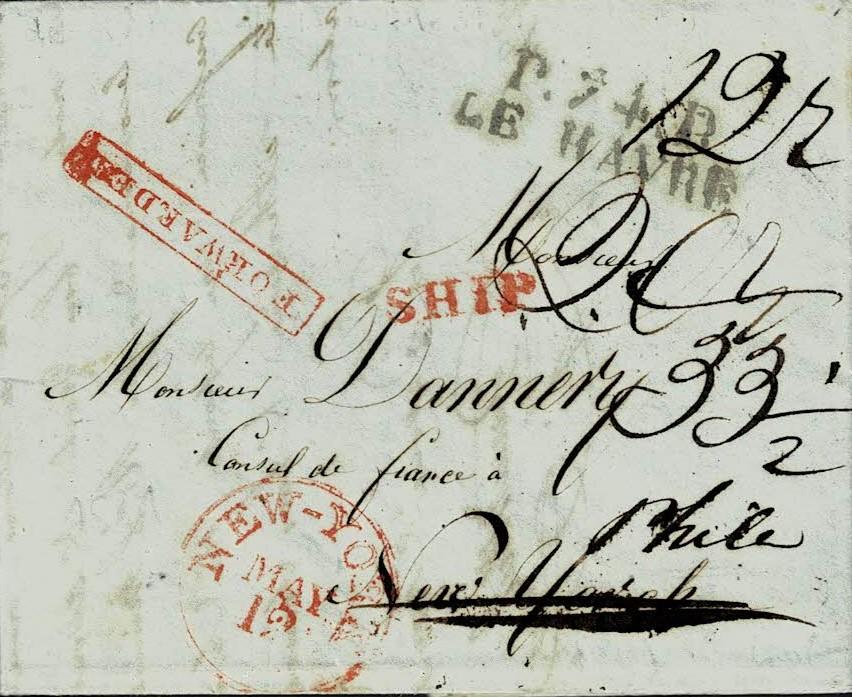 P. 74 P.
LE HAVRE
12
FORWARDED
Monsieur
SHIP
Monsieur Dannery
33 1/2
Consul de france à
Phila
New York
NEW-YORK
MAY
13